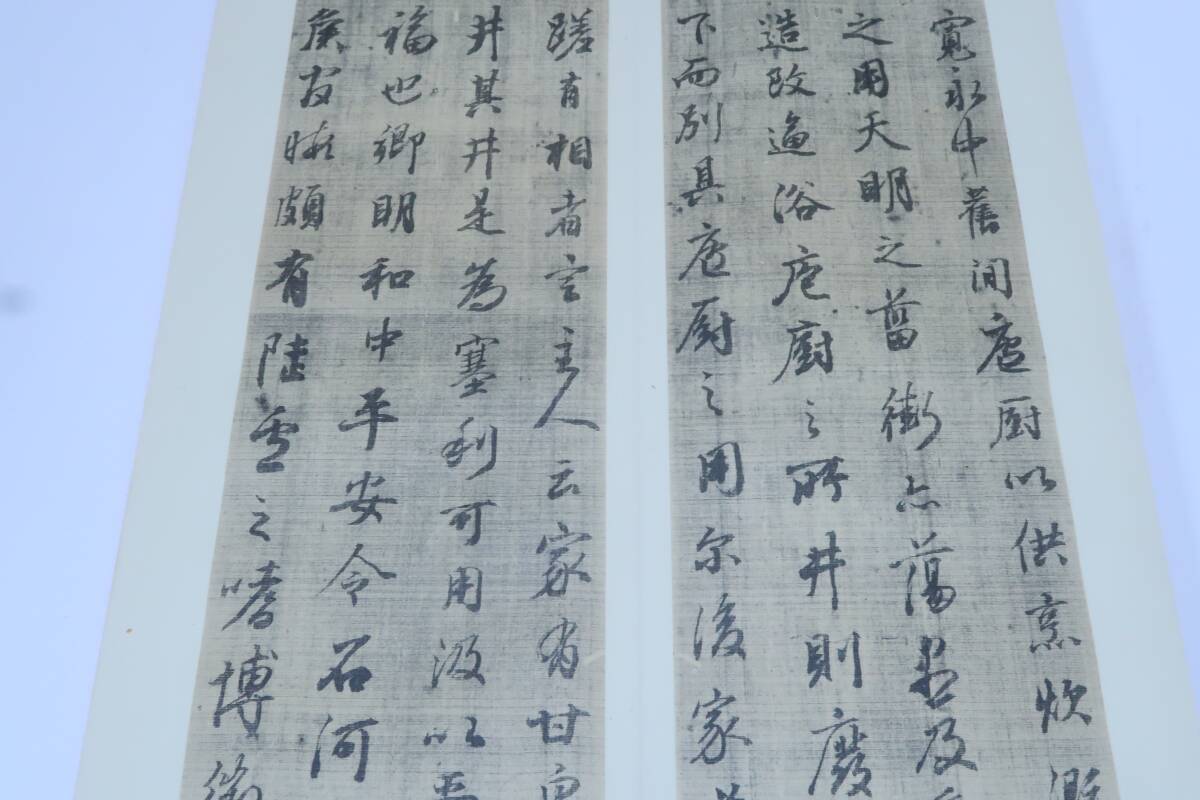 寛永中舊聞庖厨以供烹炊
之用天明之菑街亦蕩盡及
造改適浴庖廚之所井則廢
下而別具庖厨之用尔後家
蹉有相者言主人云家有甘
井其井是為塞利可用汲以
福也卿明和中平安令石河
侯友頗有陸之嗜博